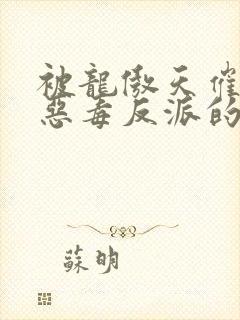 被龍傲天催
惡毒反派的
蘇明